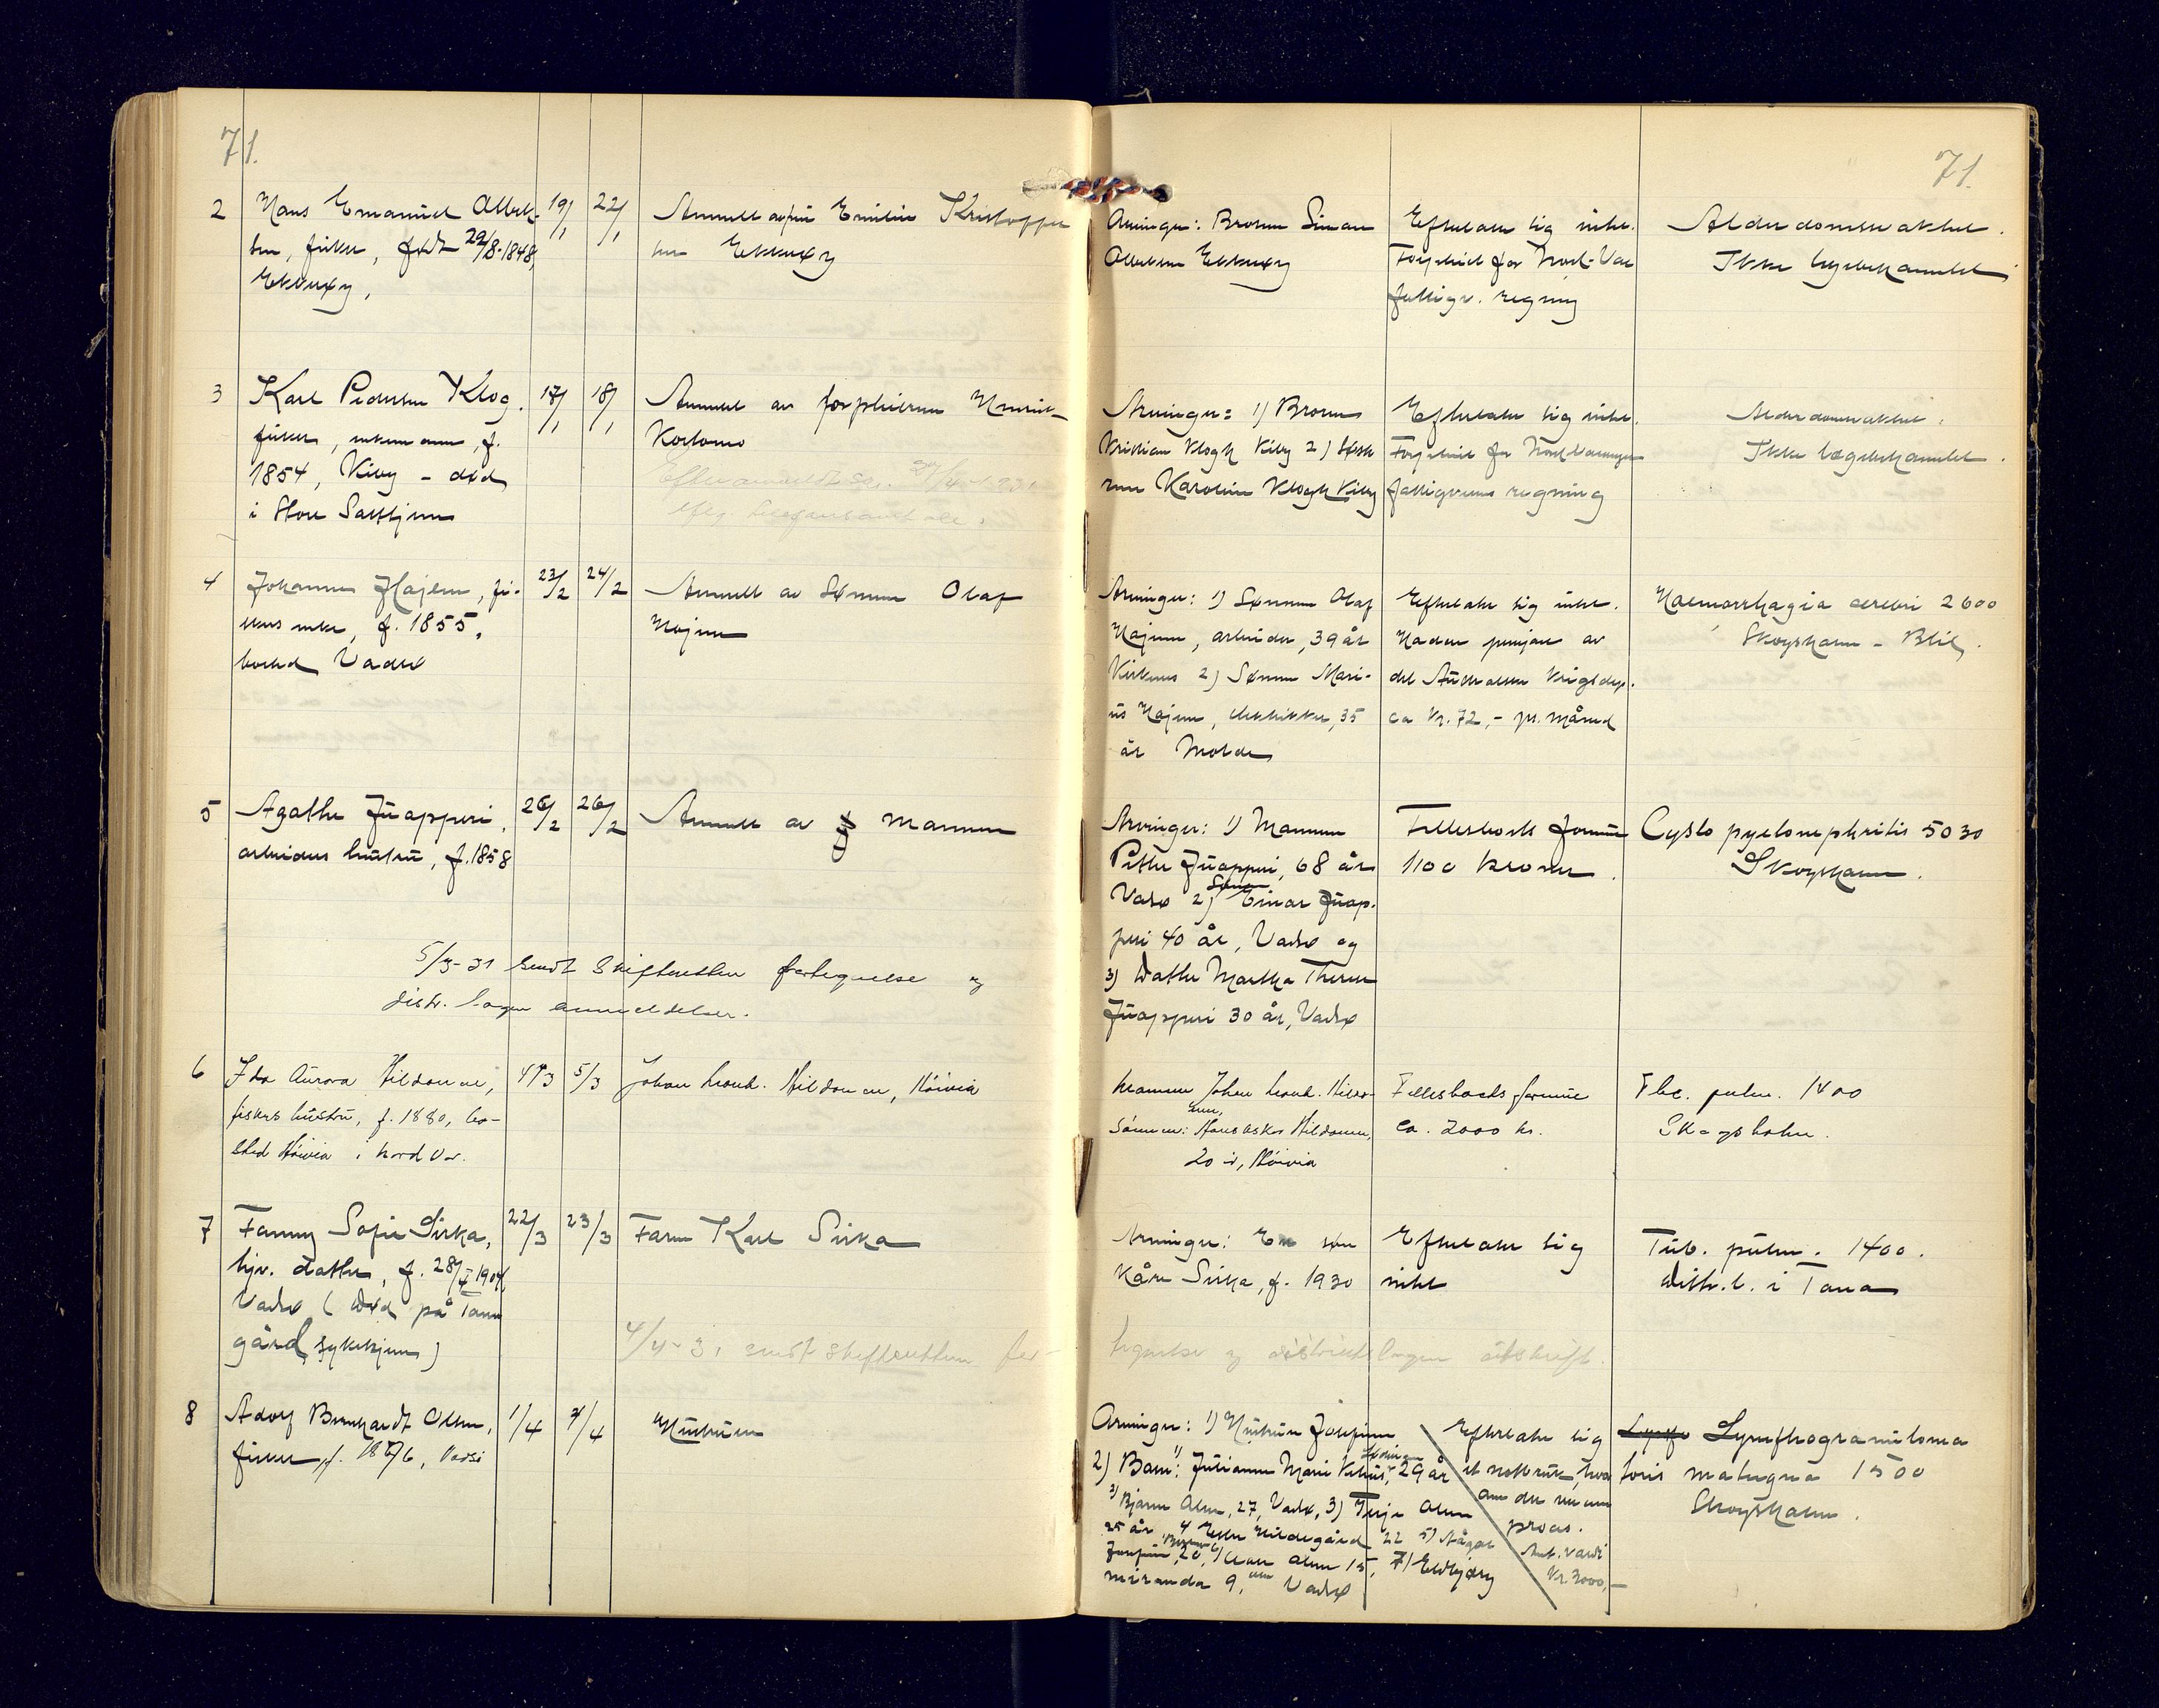 71.
71.
2
Hans Emanuel Albrik-
sen, fisker, født 29/8-1848,
Ekkerøy,
19/1
22/1
Anmeldt av fru Emilie Kristoffer
sen Ekkerøy
Arvinger: Broren Simon
Albriksen Ekkerøy
Efterlater sig intet.
Forpleiet for Nord-Var
fattigv. regning
Alderdomssvakhet.
Ikke lægebehandlet
3
Karl Pedersen Klog.
fisker, enkemann, f.
1854, Kiby - død
i Store Salttjern
17/1
18/1
Anmeldt av forpleieren Henrik
Kortomo
Arvinger: 1) Broren
Kristian Klogh Kiby 2) Søste
ren Karoline Klogh Kiby
Efterlater sig intet.
Forpleiet for Nord Varanger
fattigvesens regning
Alderdomssvakhet.
Ikke lægebehandlet.
4
Johanne Hajem, fi-
skers enke, f. 1855,
bosted Vadsø
23/2
24/2
Anmeldt av Sønnen Olaf
Hajem
Arvinger: 1) Sønnen Olaf
Hajem, arbeider, 39 år
Kirkenes 2) Sønnen Mari-
us Hajem, elektriker, 35
år Molde
Efterlater sig intet.
Hadde pensjon av
det Australske Krigsdep.
ca Kr. 72,- pr. måned
Haemorrhagia cerebri 2600
Skogsholm -
5
Agathe Juapperi,
arbeiders hustru, f. 1858
26/2
26/2
Anmeldt av mannen
Arvinger: 1) Mannen
Petter Juapperi, 68 år
Vadsø 2) Sønnen Einar Juap-
peri 40 år, Vadsø og
3) Datter Martha Therese
Juapperi 30 år, Vadsø
Fellesboets formue
1100 kroner.
Cysto pyelonephritis 5030
Skogsholm.
5/3-31 sendt Skifteretten fortegnelse og
distr. lægen anmeldelser.
6
Ida Aurora Hildonen,
fiskers hustru, f. 1880, bo-
sted Höivia i Nord Var.
4/3
5/3
Johan Leonh. Hildonen, Höivia
Mannen Johan Leonh. Hildo-
nen,
Sönnen: Hans Oskar Hildonen,
20 år, Höivia
Fellesboets formue
ca. 2000 kr.
Tbc. pulm. 1400
Skogsholm.
7
Fanny Sofie Sirka,
hjv. datter, f. 28/I 1904,
Vadsø (Død på Tana
gård, sykehjem)
22/3
23/3
Faren Karl Sirka
Arvinger: En søn
Kåre Sirka, f. 1930
Efterlater sig
intet
Tub. pulm. 1400.
distr.l. i Tana
4/4-31 sendt skifteretten for-
tegnelse og distriktslægen utskrift.
8
Adolf Bernhardt Olsen,
fisker, f. 1876, Vadsø
1/4
4/4
Hustruen
Arvinger: 1) Hustru Josefine
2) Barn: 1) Julianne Marie 29 år
2) Bjarne Olsen, 27, Vadsø, 3) Terje Olsen
25 år, 4 Ester Hildegård 22 5) Aagot
Josefine, 20, 6) Olsen 15, 7) Eldbjørg
Miranda 9, Vadsø
Efterlater sig
et nothus, hvor
om der er
proces.
Ant. verdi
Kr 3000,-
Lymfhogranuloma
tosis maligna 1500
Skogsholm.